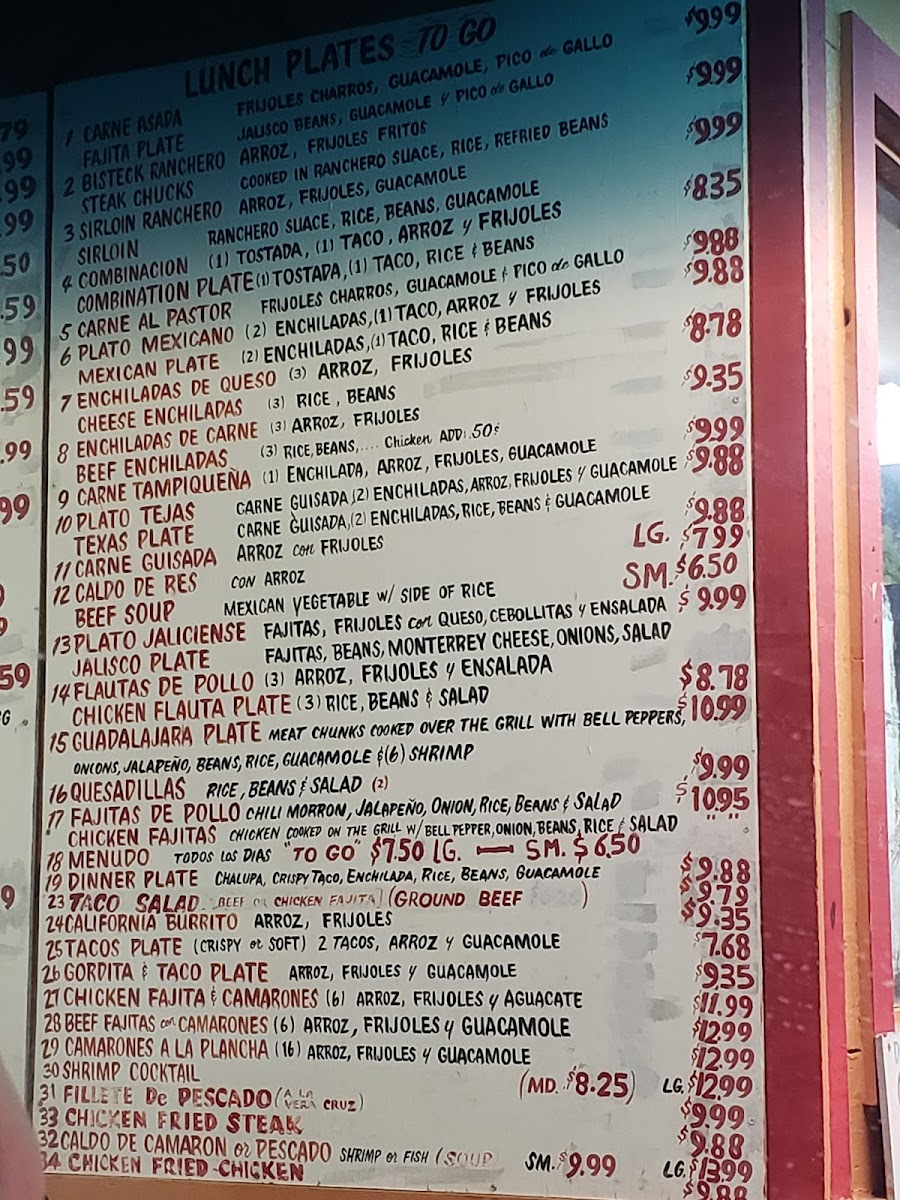 LUNCH PLATES TO GO
1 CARNE ASADA FRIJOLES CHARROS, GUACAMOLE, PICO de GALLO $9.99
FAJITA PLATE JALISCO BEANS, GUACAMOLE Y PICO de GALLO
2 BISTECK RANCHERO ARROZ, FRIJOLES FRITOS $9.99
STEAK CHUCKS COOKED IN RANCHERO SUACE, RICE, REFRIED BEANS
3 SIRLOIN RANCHERO ARROZ, FRIJOLES, GUACAMOLE $9.99
SIRLOIN RANCHERO SUACE, RICE, BEANS, GUACAMOLE
4 COMBINACION (1) TOSTADA, (1) TACO, ARROZ Y FRIJOLES $8.35
COMBINATION PLATE (1) TOSTADA, (1) TACO, RICE & BEANS
5 CARNE AL PASTOR FRIJOLES CHARROS, GUACAMOLE & PICO de GALLO $9.88
6 PLATO MEXICANO (2) ENCHILADAS, (1) TACO, ARROZ Y FRIJOLES $9.88
MEXICAN PLATE (2) ENCHILADAS, (1) TACO, RICE & BEANS
7 ENCHILADAS DE QUESO (3) ARROZ, FRIJOLES $8.78
CHEESE ENCHILADAS (3) RICE, BEANS
8 ENCHILADAS DE CARNE (3) ARROZ, FRIJOLES $9.35
BEEF ENCHILADAS (3) RICE, BEANS,.... Chicken ADD: .50¢
9 CARNE TAMPIQUEÑA (1) ENCHILADA, ARROZ, FRIJOLES, GUACAMOLE $9.99
10 PLATO TEJAS CARNE GUISADA, (2) ENCHILADAS, ARROZ, FRIJOLES Y GUACAMOLE $9.88
TEXAS PLATE CARNE GUISADA, (2) ENCHILADAS, RICE, BEANS & GUACAMOLE
11 CARNE GUISADA ARROZ con FRIJOLES $9.88
12 CALDO DE RES CON ARROZ LG. $7.99
BEEF SOUP MEXICAN VEGETABLE w/ SIDE OF RICE SM. $6.50
13 PLATO JALICIENSE FAJITAS, FRIJOLES con QUESO, CEBOLLITAS Y ENSALADA $9.99
JALISCO PLATE FAJITAS, BEANS, MONTERREY CHEESE, ONIONS, SALAD
14 FLAUTAS DE POLLO (3) ARROZ, FRIJOLES Y ENSALADA $8.78
CHICKEN FLAUTA PLATE (3) RICE, BEANS & SALAD
15 GUADALAJARA PLATE MEAT CHUNKS COOKED OVER THE GRILL WITH BELL PEPPERS, $10.99
ONIONS, JALAPEÑO, BEANS, RICE, GUACAMOLE & (6) SHRIMP
16 QUESADILLAS RICE, BEANS & SALAD (2) $9.99
17 FAJITAS DE POLLO CHILI MORRON, JALAPEÑO, ONION, RICE, BEANS & SALAD $10.95
CHICKEN FAJITAS CHICKEN COOKED ON THE GRILL W/ BELL PEPPER, ONION, BEANS, RICE & SALAD
18 MENUDO TODOS LOS DIAS "TO GO" $7.50 LG. — SM. $6.50
19 DINNER PLATE CHALUPA, CRISPY TACO, ENCHILADA, RICE, BEANS, GUACAMOLE $9.88
23 TACO SALAD BEEF or CHICKEN FAJITA (GROUND BEEF ) $9.79
24 CALIFORNIA BURRITO ARROZ, FRIJOLES $9.35
25 TACOS PLATE (CRISPY or SOFT) 2 TACOS, ARROZ Y GUACAMOLE $7.68
26 GORDITA & TACO PLATE ARROZ, FRIJOLES Y GUACAMOLE $9.35
27 CHICKEN FAJITA & CAMARONES (6) ARROZ, FRIJOLES Y AGUACATE $11.99
28 BEEF FAJITAS con CAMARONES (6) ARROZ, FRIJOLES Y GUACAMOLE $12.99
29 CAMARONES A LA PLANCHA (16) ARROZ, FRIJOLES Y GUACAMOLE $12.99
30 SHRIMP COCKTAIL (MD. $8.25) LG. $12.99
31 FILLETE De PESCADO (A LA VERA CRUZ) $9.99
33 CHICKEN FRIED STEAK $9.88
32 CALDO DE CAMARON or PESCADO SHRIMP or FISH (SOUP SM. $9.99 LG. $13.99
34 CHICKEN FRIED CHICKEN $9.88
.79
.99
.99
.99
.50
.59
.99
.59
.99
99
9
59
9